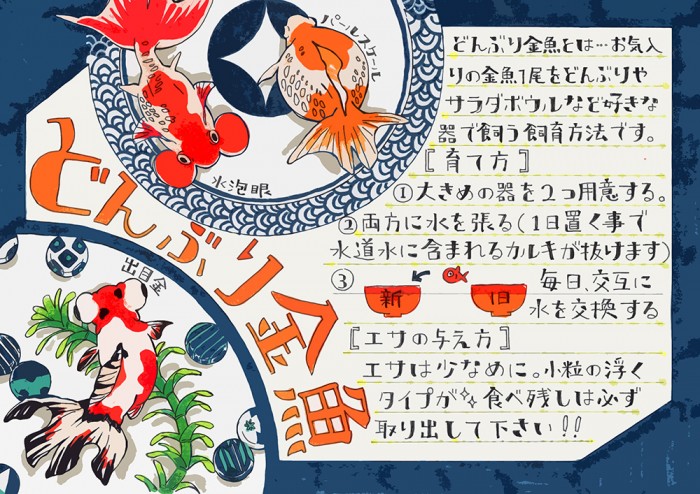 パールスケール
水泡眼
出目金
どんぶり金魚
どんぶり金魚とは…お気入
りの金魚1尾をどんぶりや
サラダボウルなど好きな
器で飼う飼育方法です。
[育て方]
①大きめの器を2つ用意する。
②両方に水を張る(1日置く事で
水道水に含まれるカルキが抜けます)
③ 新 旧 毎日、交互に
水を交換する
[エサの与え方]
エサは少なめに。小粒の浮く
タイプが✨食べ残しは必ず
取り出して下さい!!